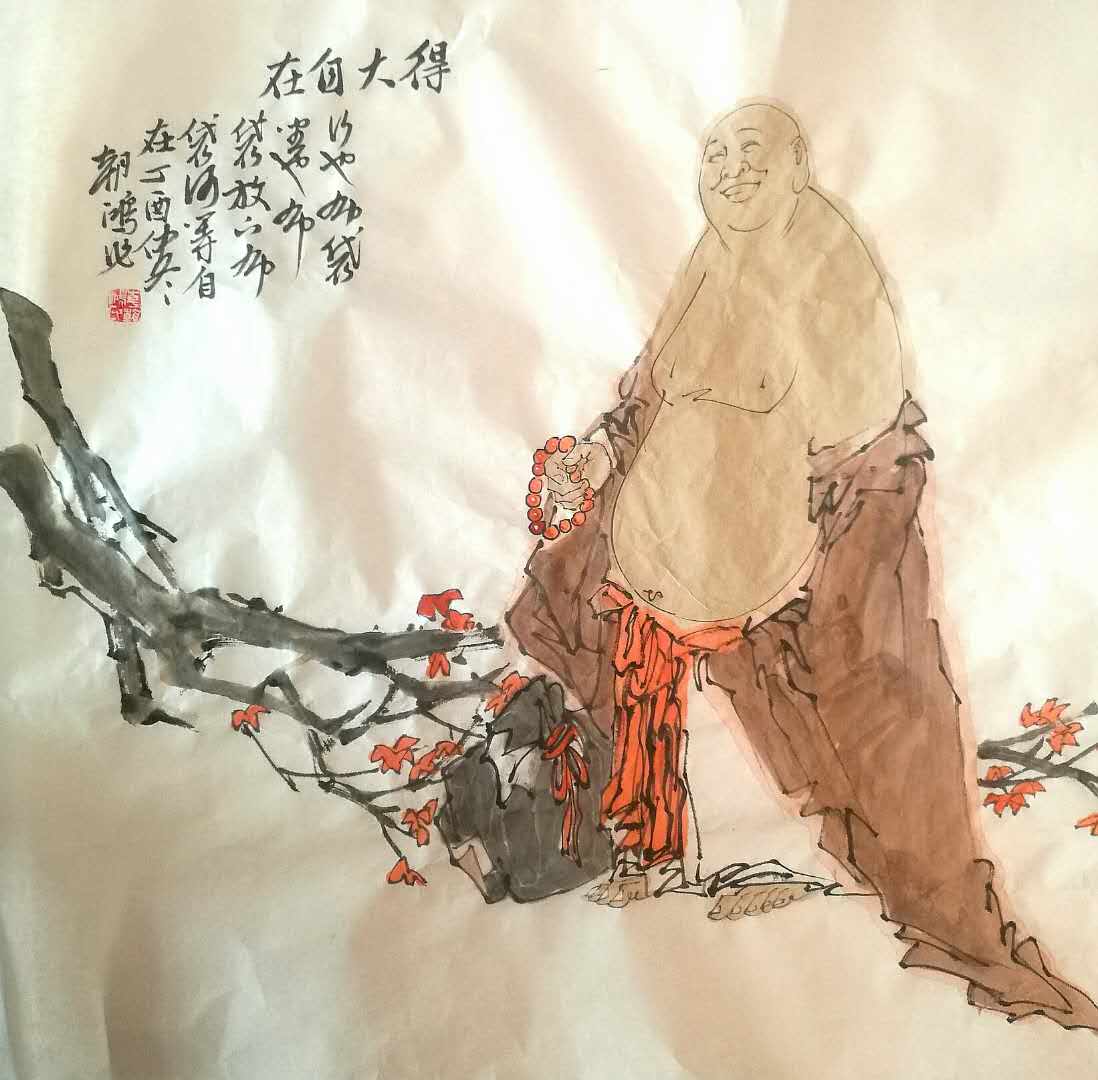 得大自在
行也布袋
坐也布
袋放下布
袋何等自
在丁酉仲冬
朝鸿